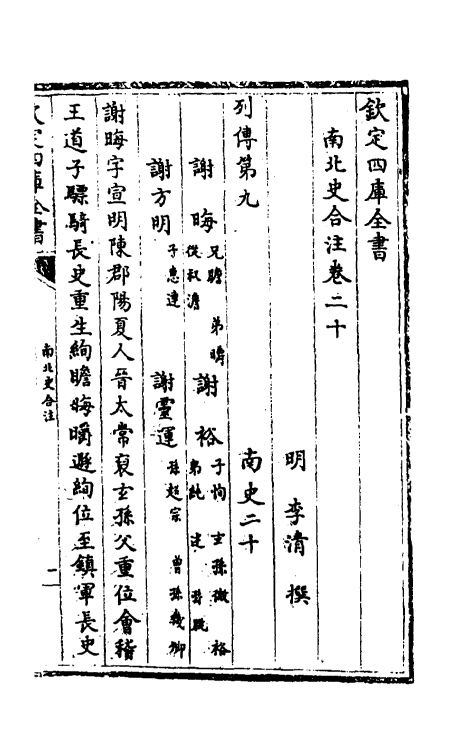 欽定四庫全書
南北史合注卷二十
明 李清 撰
列傳第九 南史二十
謝晦 兄瞻 弟㬭 從叔澹 謝裕 子恂 玄孫微 裕弟純 述 孫朓
謝方明 子惠連 謝靈運 孫超宗 曾孫幾卿
謝晦字宣明陳郡陽夏人晉太常裒玄孫父重位會稽
王道子驃騎長史重生絢瞻晦㬭遯絢位至鎮軍長史
欽定四庫全書
南北史合注
一